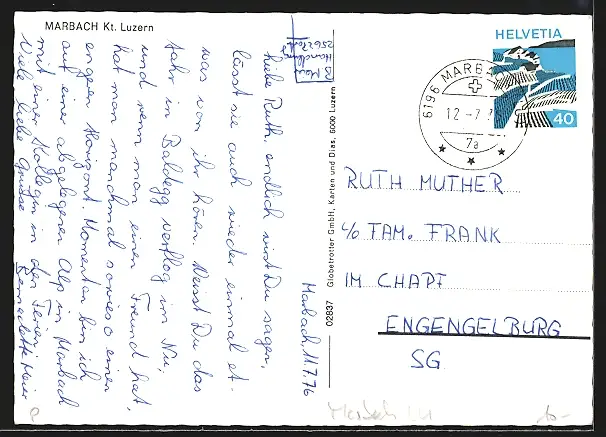 MARBACH Kt. Luzern
Marbach, 11.7.76
Liebe Ruth, endlich wirst Du sagen,
lässt sie auch wieder einmal et-
was von ihr hören. Weisst Du das
Jahr in Baldegg verflog im Nu,
und wenn man einen Freund hat,
hat man manchmal sowieso einen
engen Horizont. Momentan bin ich
auf einer abgelegenen Alp in Marbach
mit einer Kollegin in den Ferien.
Viele liebe Grüsse Bernadette Meier
B. Meier
Handlung
02837 Globetrotter GmbH, Karten und Dias, 6000 Luzern
HELVETIA
40
6196 MARBACH
12-7
7a
RUTH MUTHER
c/o FAM. FRANK
IM CHAPF
ENGENGELBURG
SG